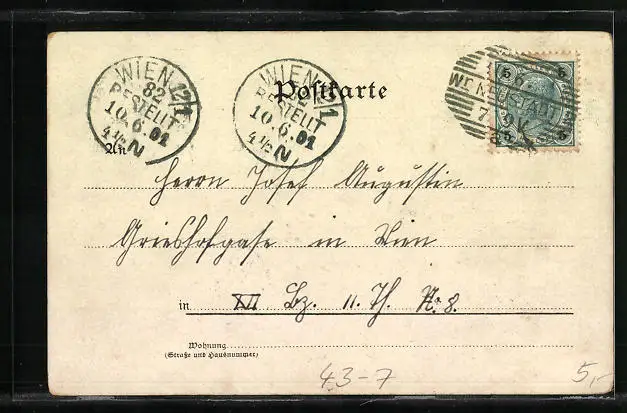 WIEN 12/1
82
BESTELLT
10.6.01
4½N
WIEN 12/1
82
BESTELLT
10.6.01
4½N
Postkarte
Wr. NEUSTADT
5 5
5 5
An
Herrn Josef Augustin
Grieshofgasse in Wien
in XII Bz. 11. Th. No. 8.
Wohnung
(Straße und Hausnummer)
43-7
5,-